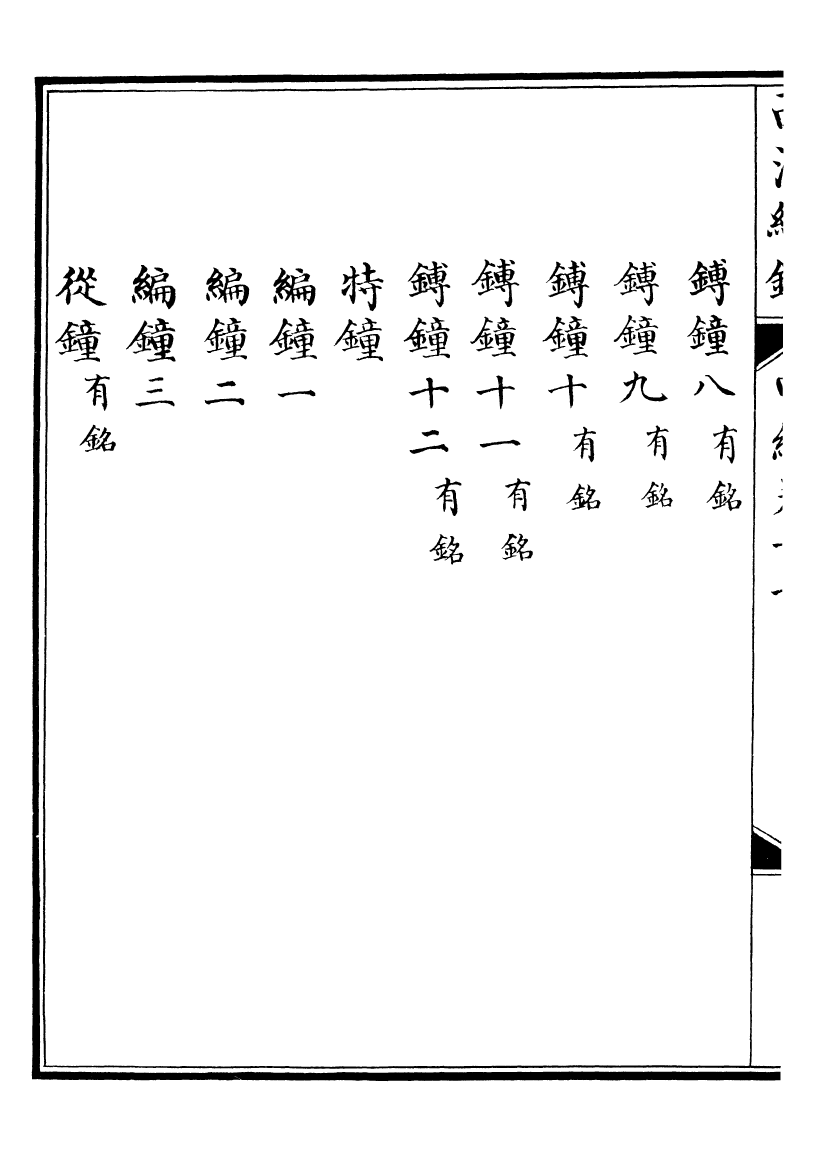 鎛鐘八有銘
鎛鐘九有銘
鎛鐘十有銘
鎛鐘十一有銘
鎛鐘十二有銘
特鐘
編鐘一
編鐘二
編鐘三
從鐘有銘